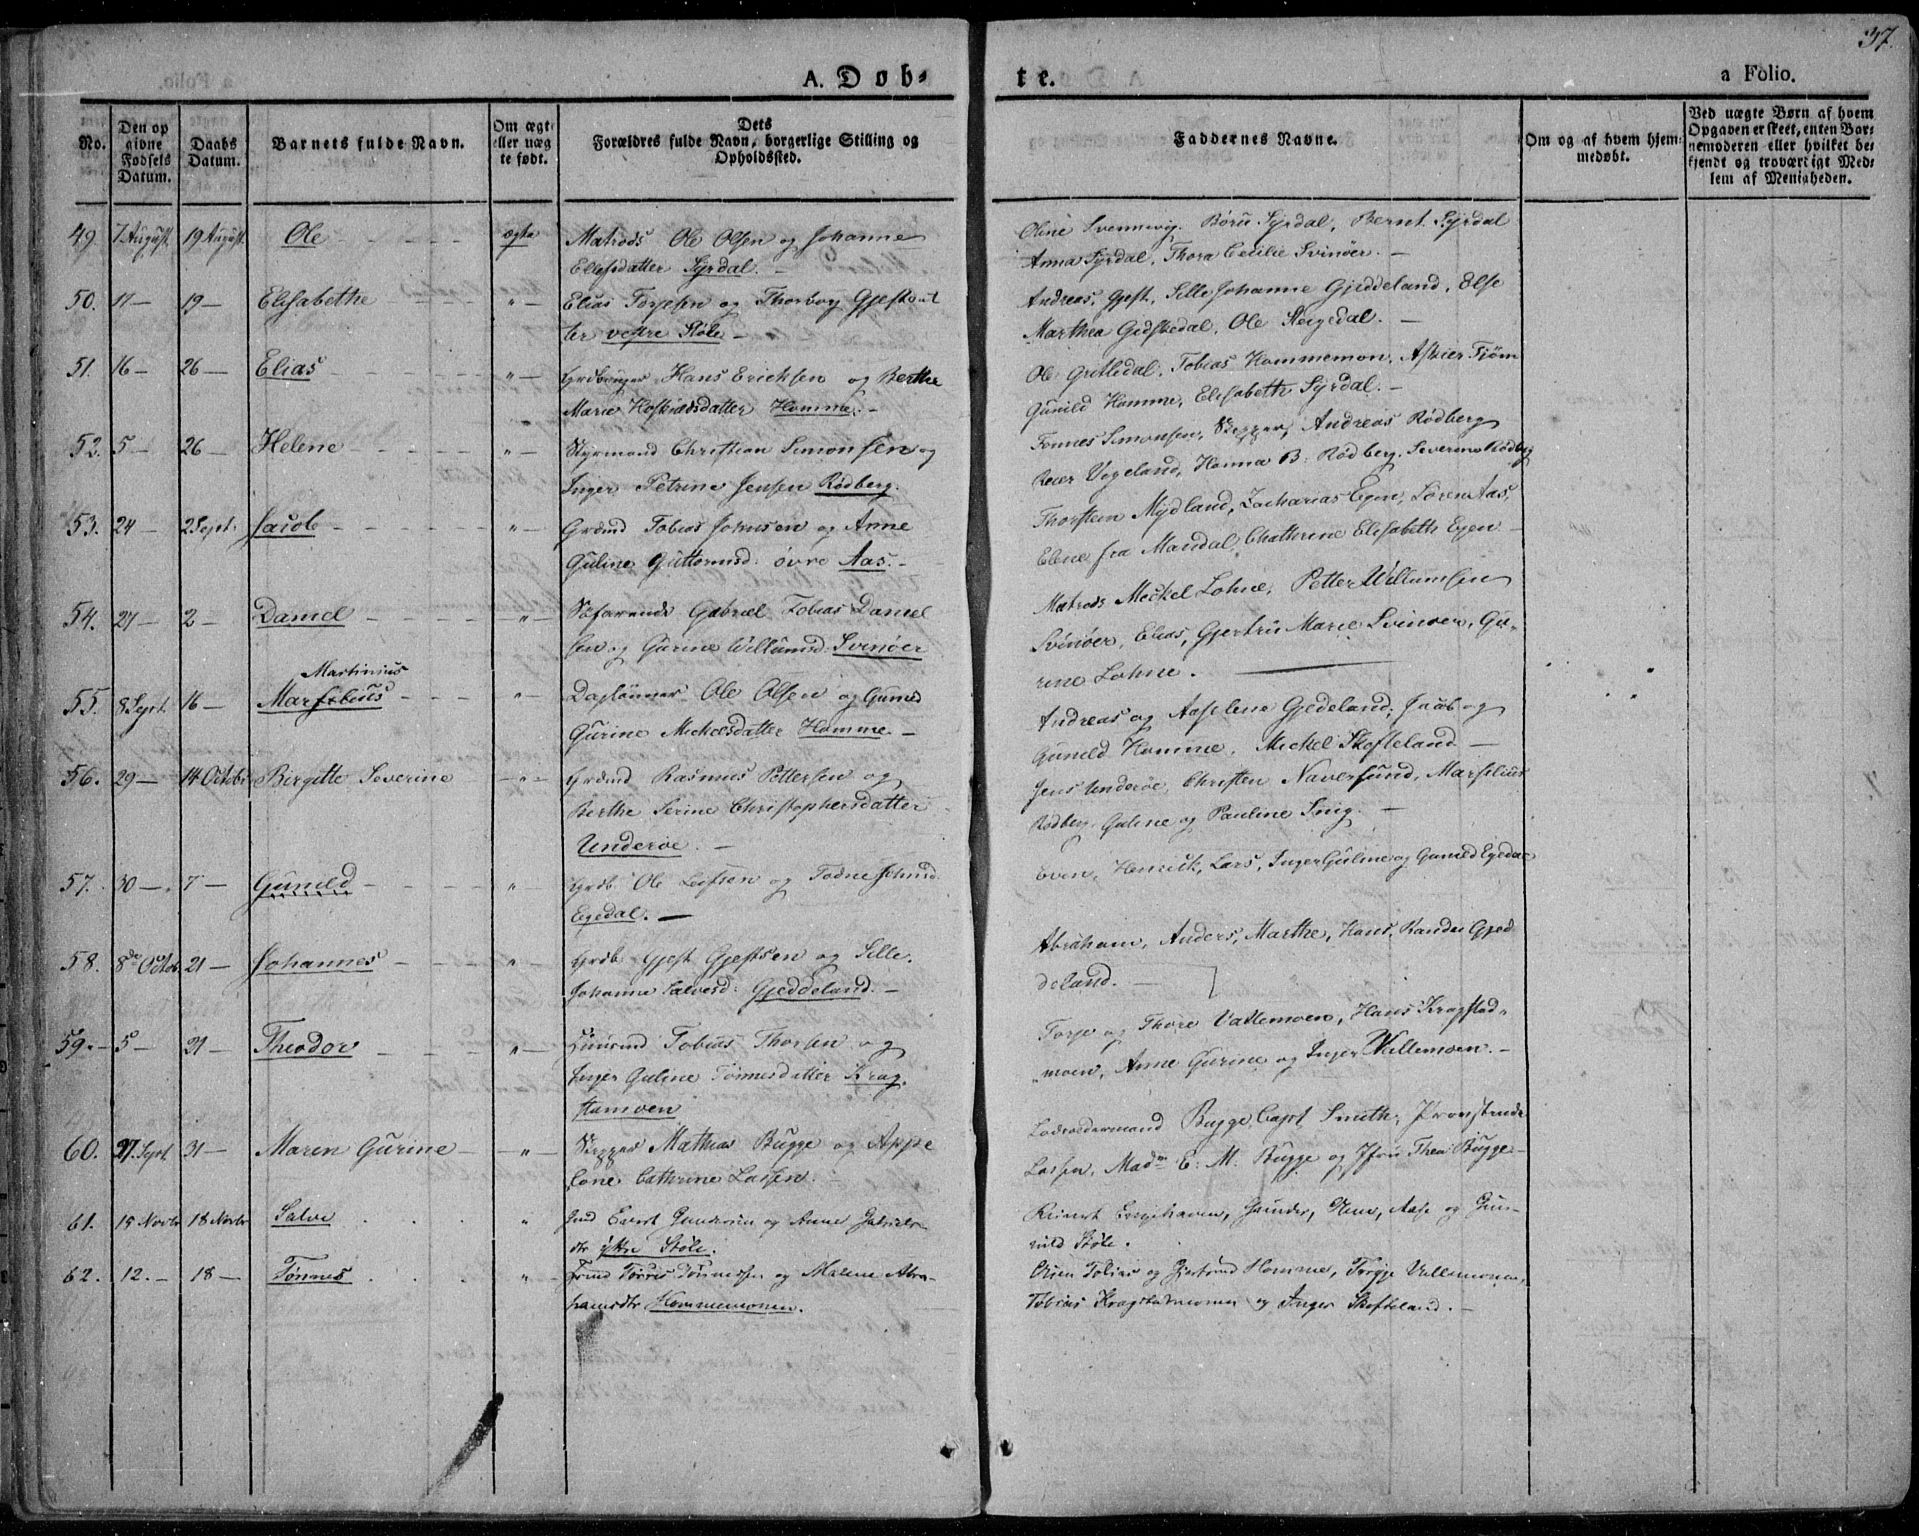 37.
A. Døb-
te.
a Folio.
No.
Den op
givne
Fødsels
Datum.
Daabs
Datum.
Barnets fulde Navn.
Om ægte
eller uæg
te født.
Dets
Forældres fulde Navn, borgerlige Stilling og
Opholdssted.
Faddernes Navne.
Om og af hvem hjem-
medøbt.
Ved uægte Børn af hvem
Opgaven er skeet, enten Bar-
nemoderen eller hvilket be-
kjendt og troværdigt Med-
lem af Menigheden.
49. 7 August. 19 August. Ole - - - - ægte Matrods Ole Olsen og Johanne
Ellefsdatter Syrdal. -
Oline Svennevig. Børu Syrdal, Bernt Syrdal
Anna Syrdal, Thora Cecilie Svinøer. -
50. 17 - 19 - Elisabethe - - - " - Elias Torjesen og Thorbog Gjestdat
ter vestre Støle -
Andreas, Gjest, Sille Johanne Gjeddeland, Else
Marthea Gidskedal, Ole Steigedal. -
51. 16 - 26 - Elias - - - " - Grdbruger Hans Erichsen og Berthe
Marie Hofkiædsdatter Homme. -
Ole Gritledal, Tobias Hommemon, Askier Tjøm
Gunild Homme, Elisabeth Syrdal. -
52. 5 - 26 - Helene - - - " - Styrmand Christian Simonsen og
Inger Petrine Jensen Rødberg.
Tønnes Simonsen, Skipper, Andreas Rødberg
Reier Vegeland, Hanna B. Rødberg, Severine Rødberg
53. 24 - 2 Sept. Jacob - - - " - Grdmd Tobias Johnsen og Anne
Guline Guttormsd: øvre Aas. -
Thorstein Mydland, Zacharias Egen, Søren Aas,
Elene fra Mandal, Chathrine Elisabeth Egen -
54. 27 - 2 - Daniel - - - " - Søfarende Gabriel Tobias Daniel
sen og Gurine Willumsd: Svinøer
Matrods Meckel Lohne, Petter Willumsen
Svinøer, Elias, Gjertru Marie Svinøer, Gu-
rine Lohne.
55. 8 Sept. 16 - Martinius
Marselius - - - " - Daglønner Ole Olsen og Gunild
Gurine Mickelsdatter Homme. -
Andreas og Aaslene Gjedeland, Jacob og
Gunild Homme, Mickel Skofteland -
56. 29 - 14 Octobr Birgitte Severine - " - Grdmd Rasmus Pettersen og
Berthe Serine Christophersdatter
Underøe. -
Jens Underøe, Christen Naversund, Marselius
Rødberg, Guline og Pauline Snig. -
57. 30 - 7 - Gunild - - - " Grdb. Ole Leifsen og Todne Johnsd
Egedal. -
Even, Henrich, Lars, Inger Guline og Gunild Egedal
58. 8de Octob. 21 - Johannes - - - " Grdb. Gjest Gjestsen og Sille
Johanne Salvesd: Gjeddeland. -
Abraham, Anders, Marthe, Hans, Randei Gjed
deland. -
59. - 5 - 21 - Theodor - - - " - Huusmd Tobias Thorsen og
Inger Guline Tønnesdatter Krag
stamoen
Torje og Thore Vallemoen, Hans Kragstad-
moen, Anne Gurine og Inger Vallemoen. -
60. 27. Sept. 31 - Maren Gurine - " - Skipper Mathias Bugge og Appe
lone Cathrine Lassen.
Lodsoldermand Bugge, Capt Smith, Provstinde
Lassen, Madm E. M. Bugge og Jfru Thea Bugge -
61. 15 Novbr 18 Novbr Salve . . . " Gmd Evert Gundersen og Anne Gabriels-
dtr ytre Støle.
Reinert Eeghaven, Gunder, Elen, Aase og Gun-
nild Støle.
62. 12. - 18 - Tønnes . . . " Grmd Torres Tønnessen og Malene Abra-
hamsdtr Hommemonen.
Osien Tobias og Gjertrud Homme, Torjje Vallemonen,
Tobias Kragstadmonen og Inger Skofteland. -